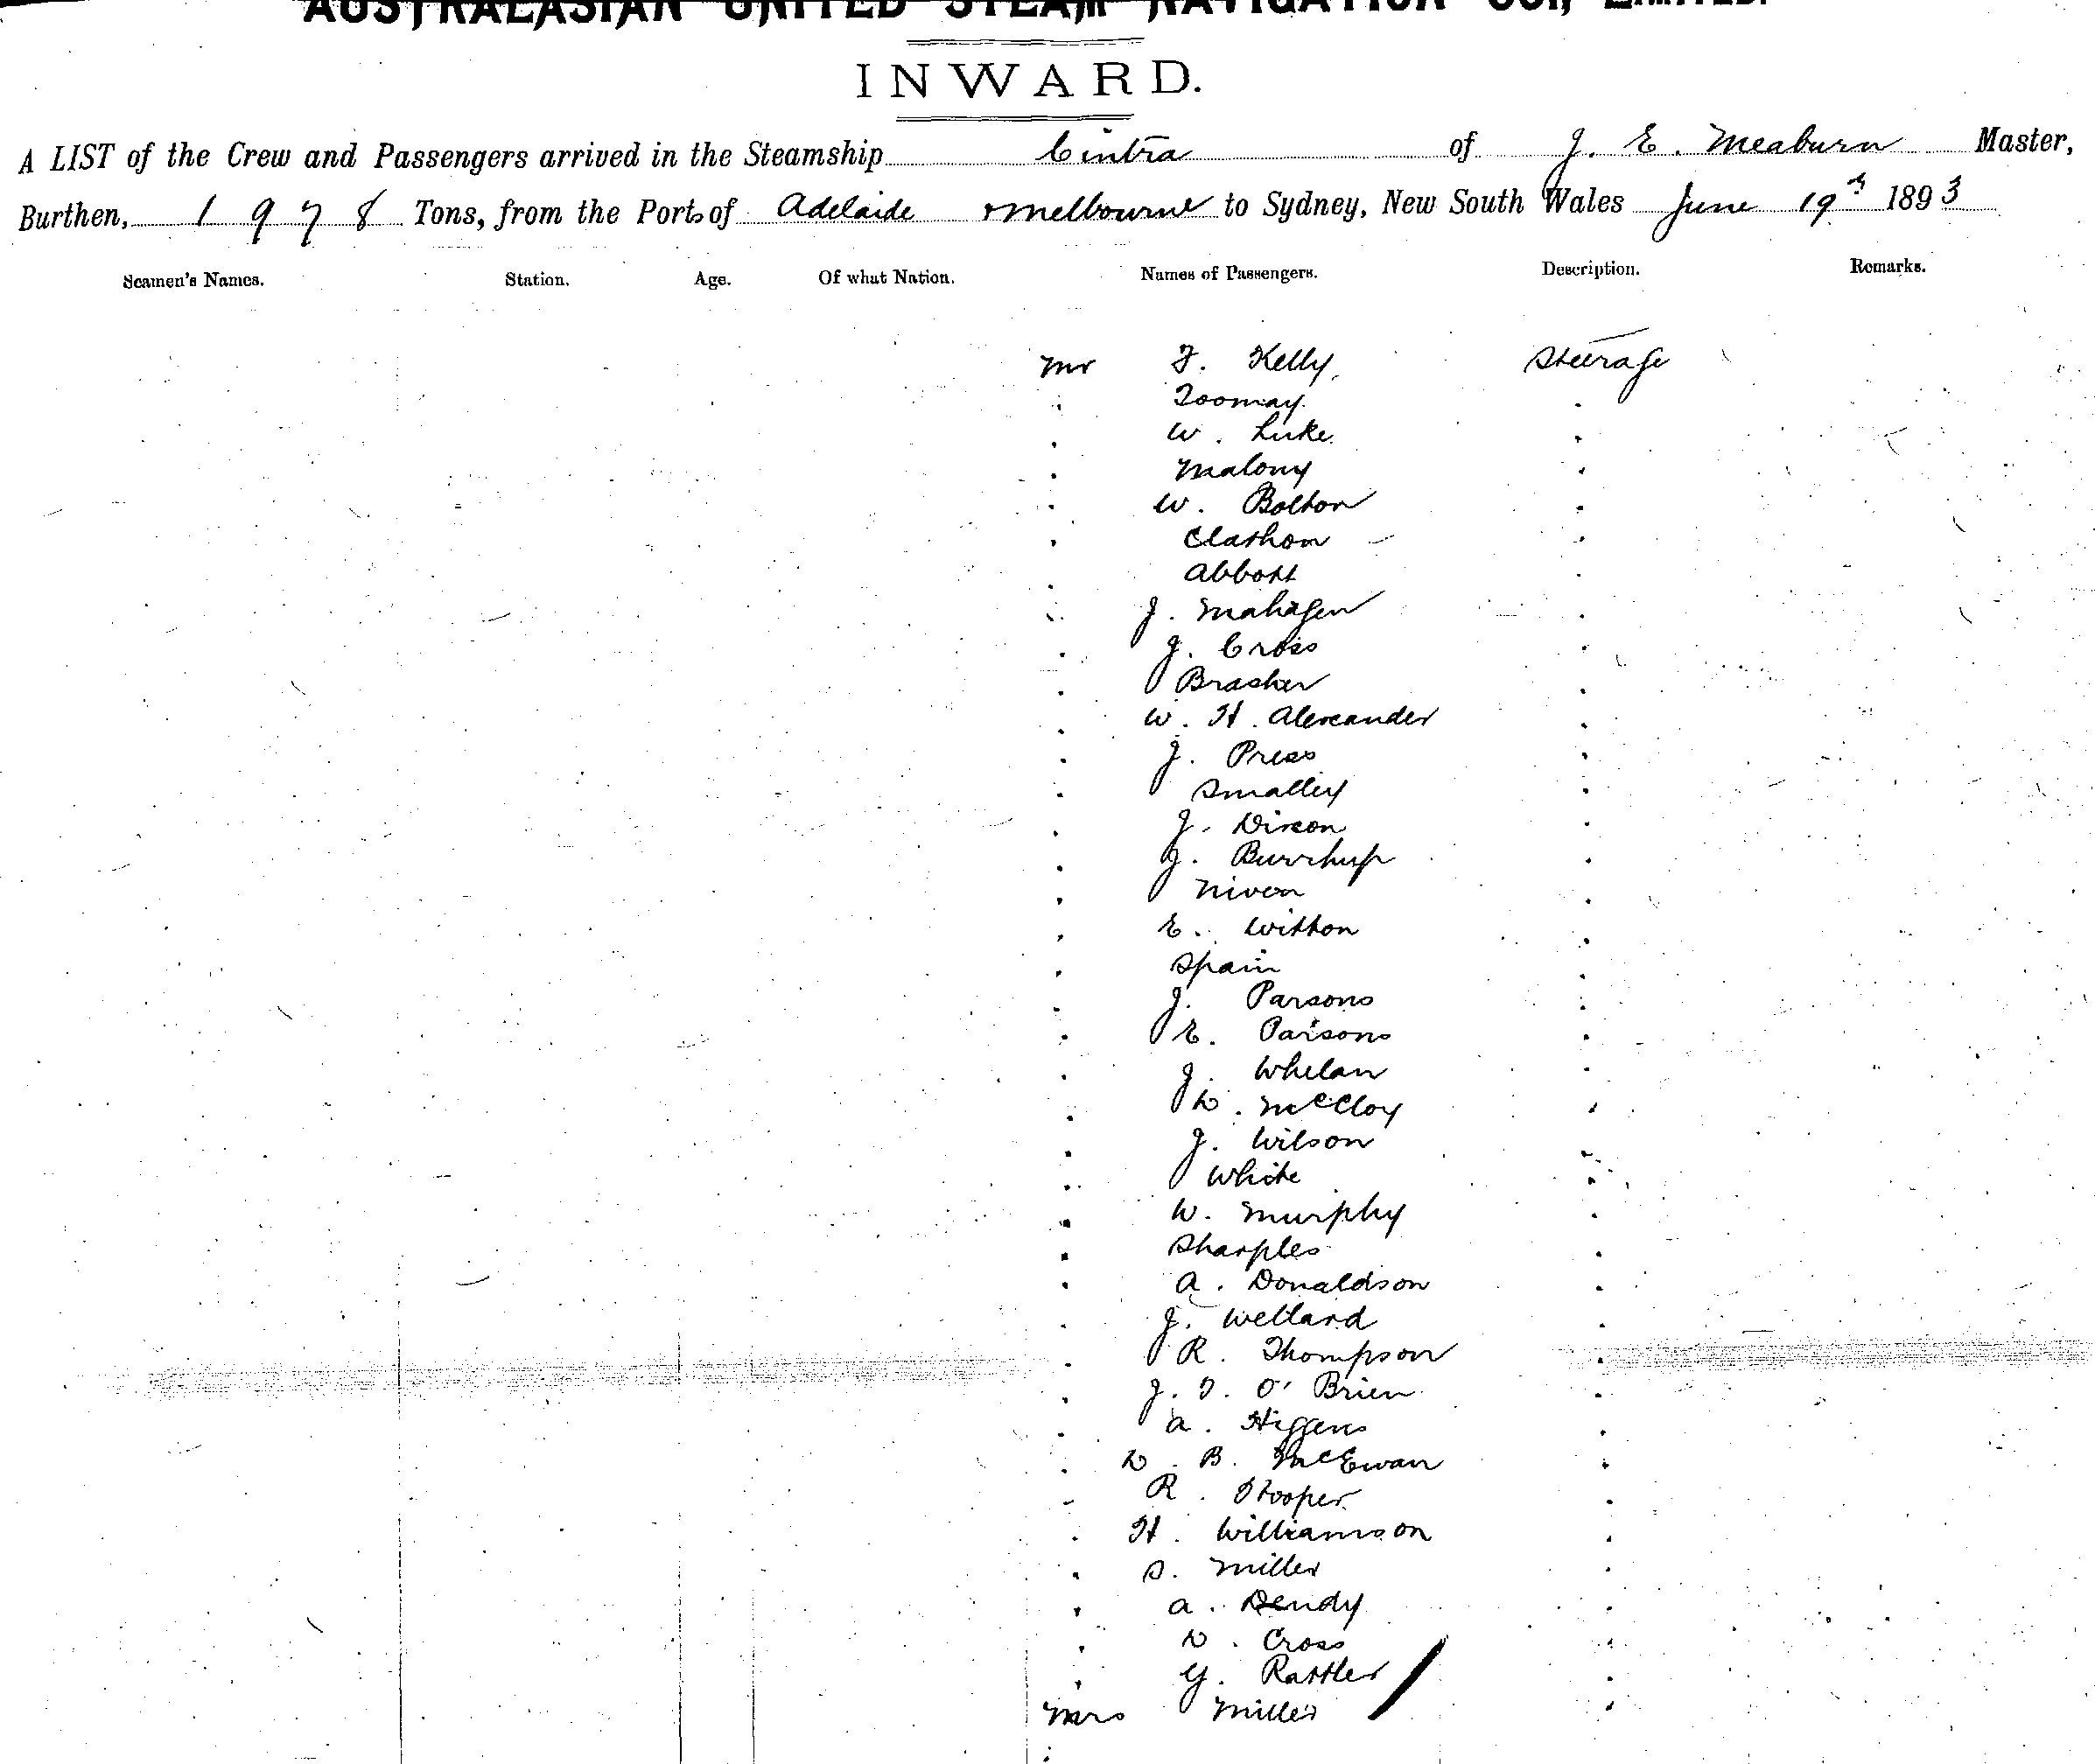 AUSTRALASIAN UNITED STEAM NAVIGATION CO., LIMITED.
INWARD.
A LIST of the Crew and Passengers arrived in the Steamship Cintra of J. E. Meaburn Master,
Burthen, 1978 Tons, from the Ports of Adelaide + Melbourne to Sydney, New South Wales June 19th 1893
Seamen's Names. Station. Age. Of what Nation. Names of Passengers. Description. Remarks.
Mr F. Kelly. Steerage
Toomay.
W. Luke.
Malony
W. Bolton
Clathon
Abbott
J. Mahagen
J. Cross
Brasher
W. H. Alexander
J. Press
Smalley
J. Dixon
J. Burrhup
Niven
E. Witton
Spain
J. Parsons
E. Parsons
J. Whelan
D. McCloy
J. Wilson
White
W. Murphy
Sharples
A. Donaldson
J. Wellard
R. Thompson
J. T. O'Brien
A. Higgens
D. B. McEwan
R. Hooper
H. Williamson
S. Miller
A. Dendy
D. Cross
G. Rattler
Mrs Miller